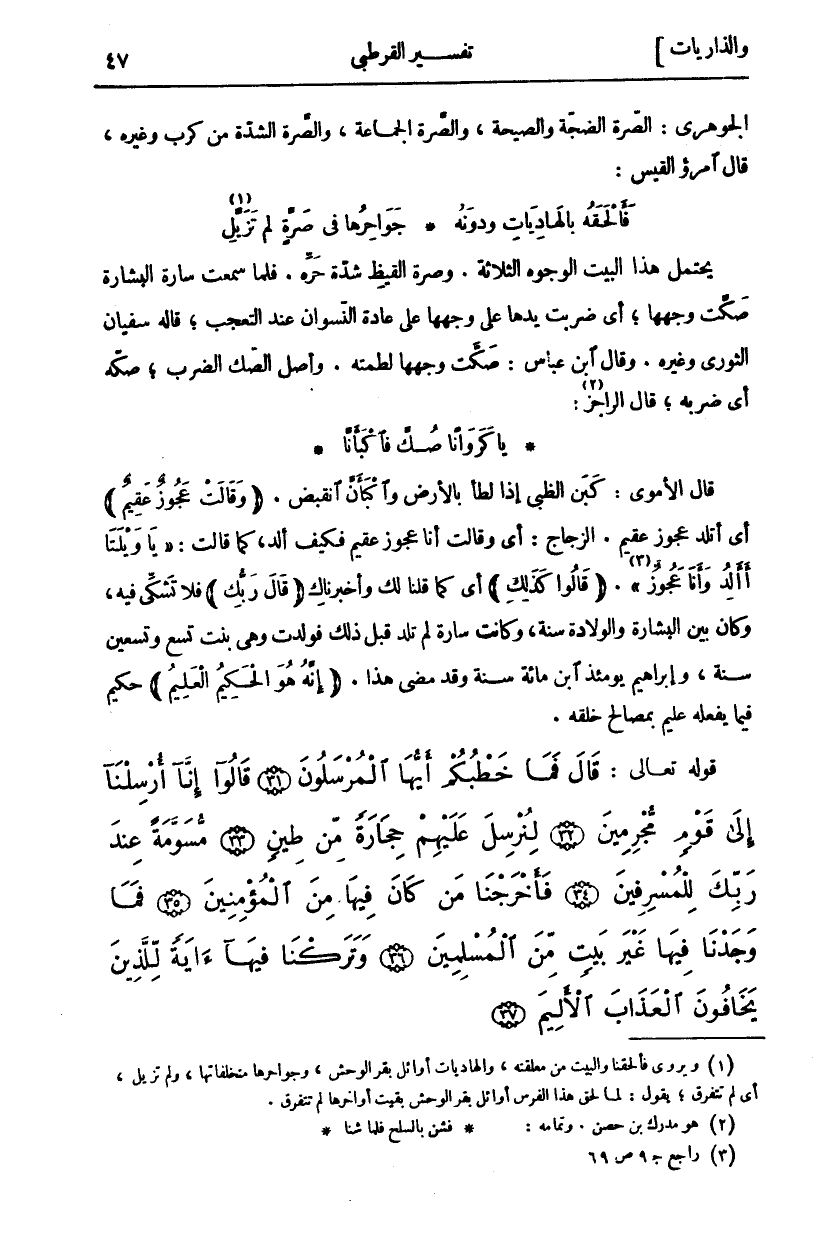 والذاريات ] تفسير القرطبى ٤٧
الجوهرى : الصّرة الضجّة والصيحة ، والصَّرة الجماعة ، والصَّرة الشدّة من كرب وغيره ،
قال آمرؤ القيس :
فَأَلْحَقَهُ بالهَادِيَاتِ ودونَهُ * جَوَاحِرُها فى صَرَّةٍ لم تَزَيَّلِ (١)
يحتمل هذا البيت الوجوه الثلاثة . وصرة القيظ شدّة حَرِّه . فلما سمعت سارة البشارة
صَكَّت وجهها ؛ أى ضربت يدها على وجهها على عادة النّسوان عند التعجب ؛ قاله سفيان
الثورى وغيره . وقال آبن عباس : صَكَّت وجهها لطمته . وأصل الصّك الضرب ؛ صكّه
أى ضربه ؛ قال الراجز (٢) :
* ياكَرَوَانًا صُكَّ فَآكْبَأَنَّا *
قال الأموى : كَبَن الظبى إذا لطأ بالأرض وآكْبَأَنَّ آنقبض . ﴿ وَقَالَتْ عَجُوزٌ عَقِيمٌ ﴾
أى أتلد عجوز عقيم . الزجاج : أى وقالت أنا عجوز عقيم فكيف ألد، كما قالت : « يَا وَيْلَتَا
أَأَلِدُ وَأَنَا عَجُوزٌ (٣) » . ﴿ قَالُوا كَذَلِكِ ﴾ أى كما قلنا لك وأخبرناك ﴿ قَالَ رَبُّكِ ﴾ فلا تَشَكِّى فيه ،
وكان بين البشارة والولادة سنة، وكانت سارة لم تلد قبل ذلك فولدت وهى بنت تسع وتسعين
سنة ، وإبراهيم يومئذ آبن مائة سنة وقد مضى هذا . ﴿ إِنَّهُ هُوَ الْحَكِيمُ الْعَلِيمُ ﴾ حكيم
فيما يفعله عليم بمصالح خلقه .
قوله تعالى : قَالَ فَمَا خَطْبُكُمْ أَيُّهَا ٱلْمُرْسَلُونَ ٣١ قَالُوٓا إِنَّآ أُرْسِلْنَآ
إِلَىٰ قَوْمٍ مُّجْرِمِينَ ٣٢ لِنُرْسِلَ عَلَيْهِمْ حِجَارَةً مِّن طِينٍ ٣٣ مُّسَوَّمَةً عِندَ
رَبِّكَ لِلْمُسْرِفِينَ ٣٤ فَأَخْرَجْنَا مَن كَانَ فِيهَا مِنَ ٱلْمُؤْمِنِينَ ٣٥ فَمَا
وَجَدْنَا فِيهَا غَيْرَ بَيْتٍ مِّنَ ٱلْمُسْلِمِينَ ٣٦ وَتَرَكْنَا فِيهَآ ءَايَةً لِّلَّذِينَ
يَخَافُونَ ٱلْعَذَابَ ٱلْأَلِيمَ ٣٧
(١) ويروى فألحقنا والبيت من معلقته ، والهاديات أوائل بقر الوحش ، وجواحرها متخلفاتها ، ولم تزيل ،
أى لم تتفرق ؛ يقول : لما لحق هذا الفرس أوائل بقر الوحش بقيت أواخرها لم تتفرق .
(٢) هو مدرك بن حصن . وتمامه : * فشن بالسلح فلما شنا *
(٣) راجع جـ ٩ ص ٦٩